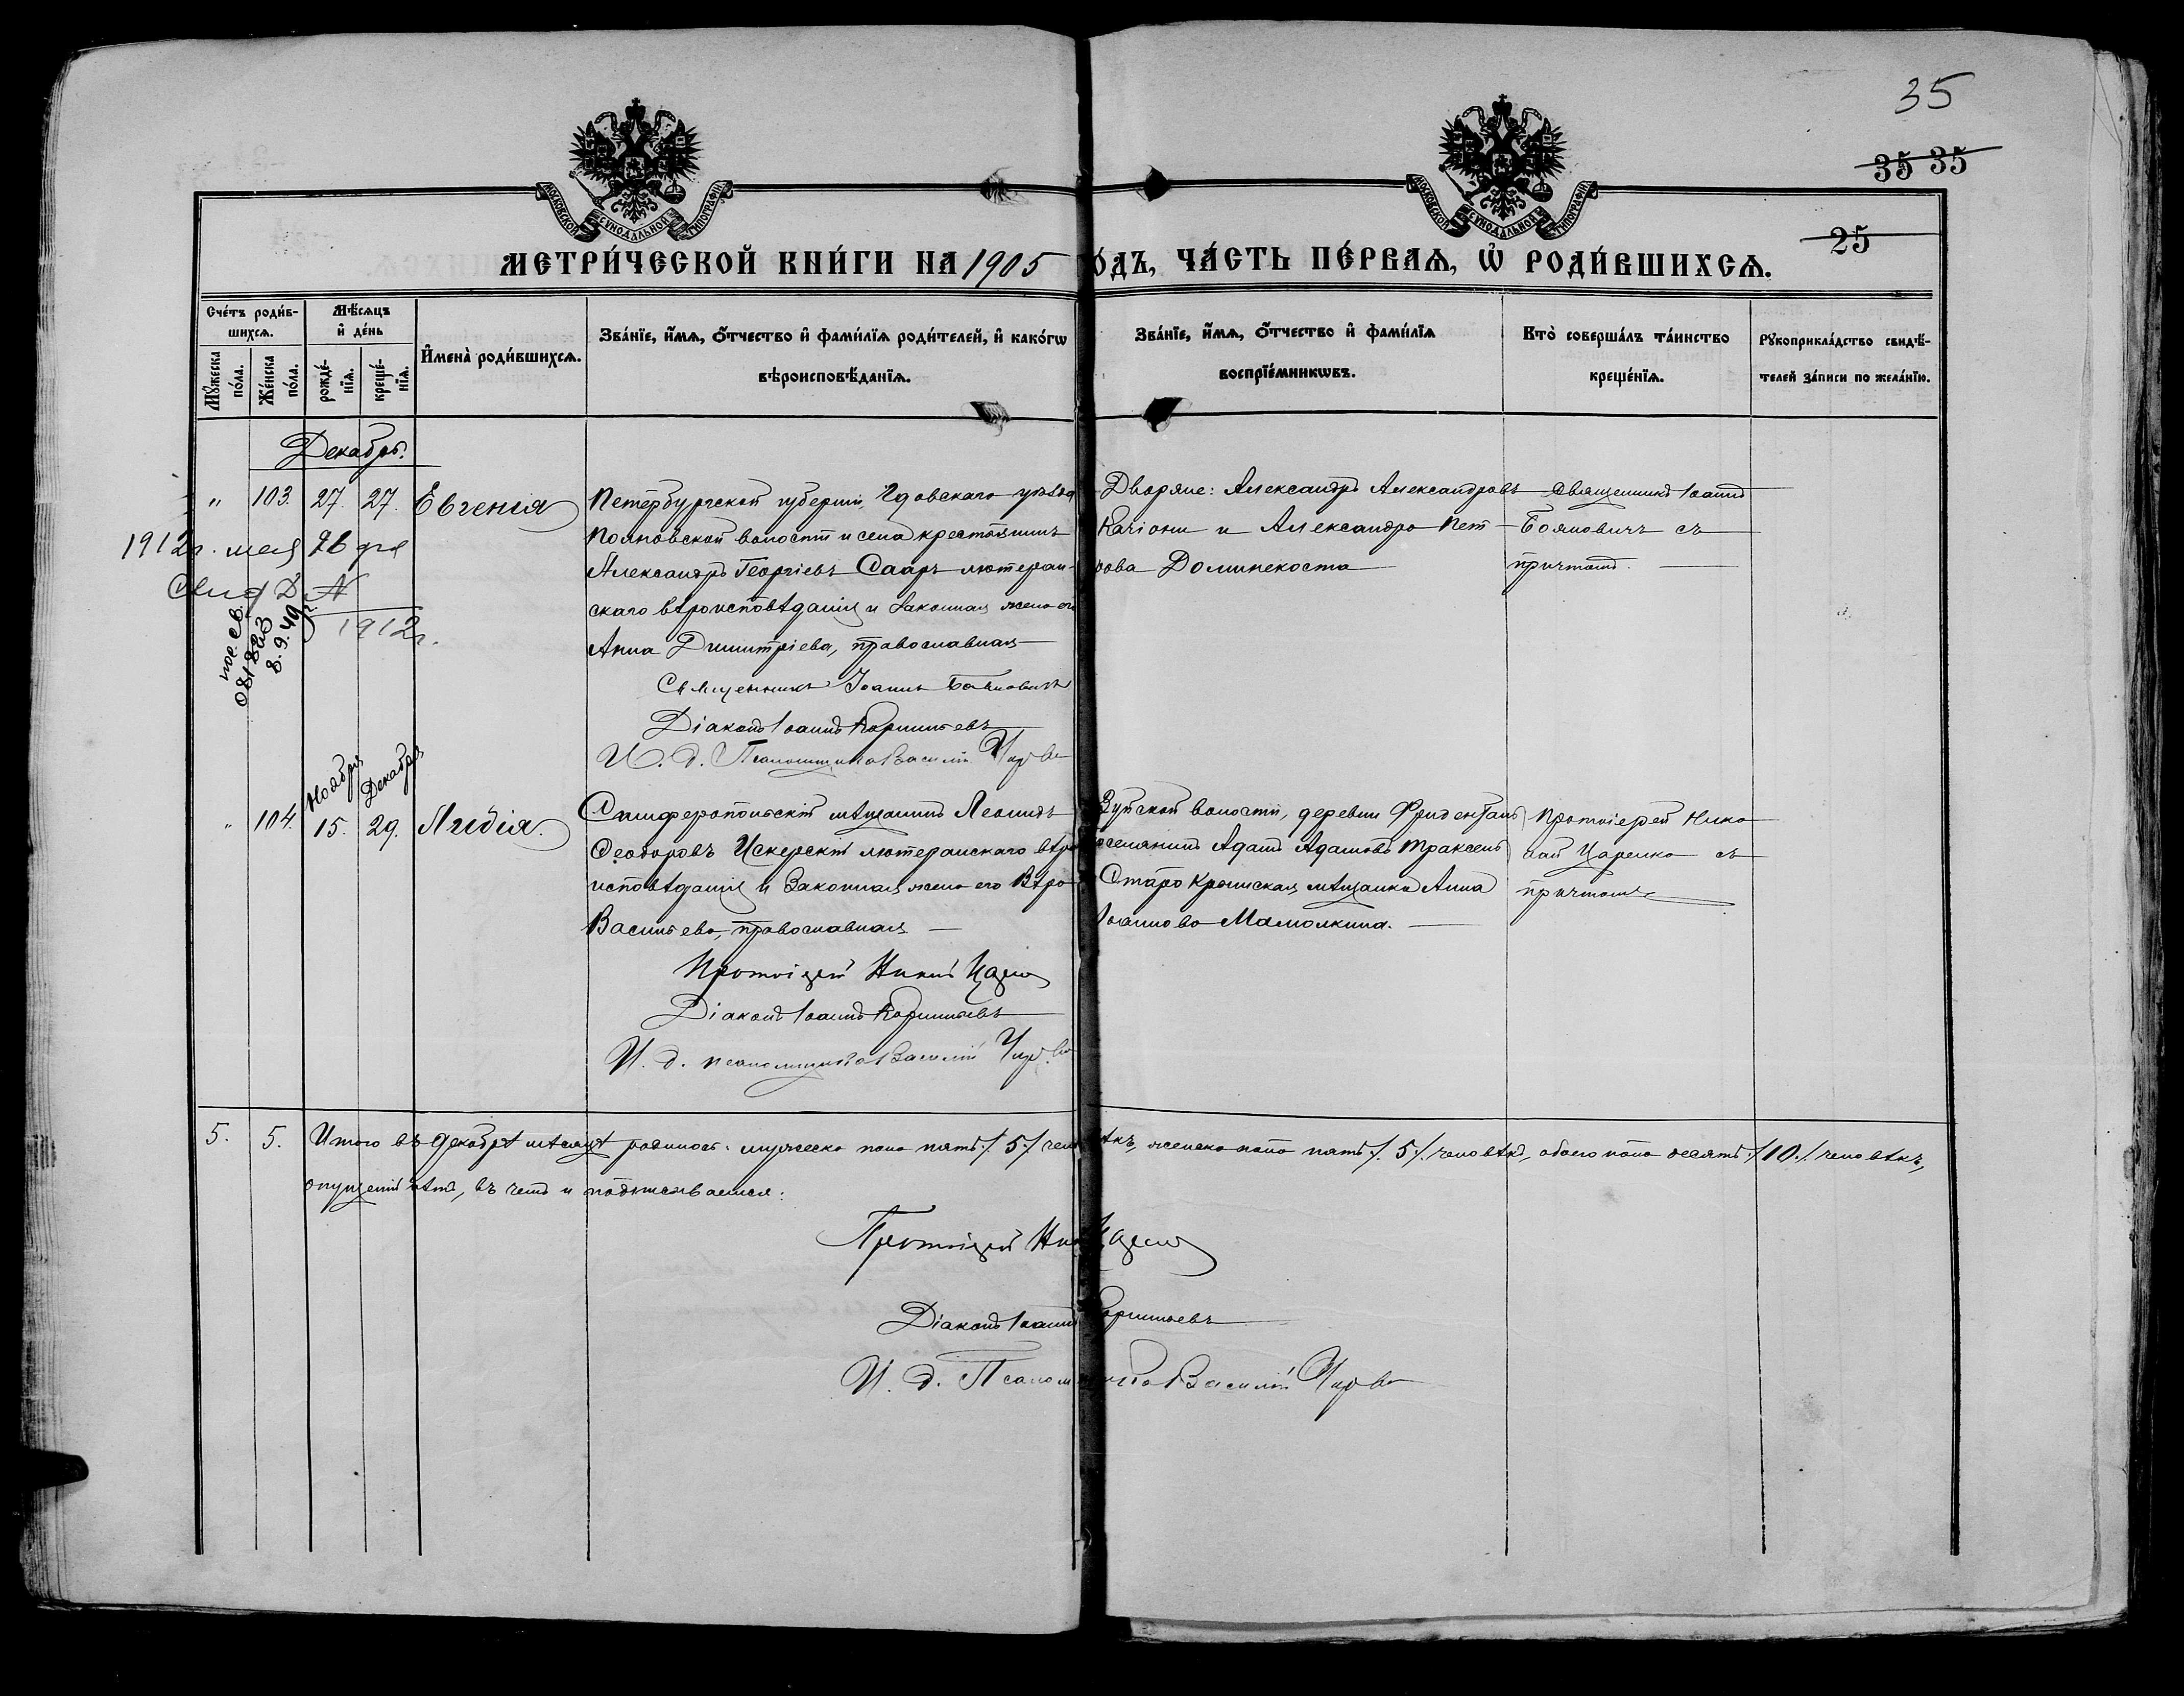 35
35 35
25
МОСКОВСКОЙ СѴНОДАЛЬНОЙ ТИПОГРАФІИ
МОСКОВСКОЙ СѴНОДАЛЬНОЙ ТИПОГРАФІИ
МЕТРИ́ЧЕСКОЙ КНИ́ГИ НА 1905 О́ДЪ, ЧА́СТЬ ПЕ́РВАѦ, Ѡ҆ РОДИ́ВШИХСѦ.
Сче́тъ роди́вшихсѧ.
Мꙋ́жеска по́ла.
Же́нска по́ла.
Мѣ́сѧцъ и҆ де́нь
рожде́нїѧ.
креще́нїѧ.
И҆мена̀ роди́вшихсѧ.
Зва́нїе, и҆́мѧ, ѻ҆́тчество и҆ фами́лїѧ роди́телей, и҆ како́гѡ
вѣроисповѣ́данїѧ.
Зва́нїе, и҆́мѧ, ѻ҆́тчество и҆ фами́лїѧ
воспрїе́мникѡвъ.
Кто̀ соверша́лъ та́инство
креще́нїѧ.
Рꙋкоприкла́дство свидѣ́-
телей за́писи по жела́нїю.
Декабрь.
" 103. 27. 27. Евгенія
Петербургской губерніи, Гдовскаго уѣзда
волости и села крестьянинъ
Александръ Георгіевъ Сааръ лютеран-
скаго вѣроисповѣданія и законная жена его
Анна Димитріева, православная
Священникъ Іоаннъ Бояновичъ
Діаконъ Іоаннъ
И. д. Псаломщика Василій
Дворяне: Александръ Александровъ
Качіони и Александра Пет-
рова
Священникъ Іоаннъ
Бояновичъ съ
причтомъ.
1912г. мая
1912г.
081823
8.9.49
Ноября Декабря
" 104. 15. 29. Лидія.
Симферопольскій мѣщанинъ Леонидъ
Ѳеодоровъ Искерскій лютеранскаго вѣро
исповѣданія и законная жена его Вѣра
Васильева, православная
Протоіерей Никол Царенко
Діаконъ Іоаннъ
И. д. псаломщика Василій
Зуйской волости, деревни Фриденталь
поселянинъ Адамъ Адамовъ
Старо Крымская мѣщанка Анна
Іоаннова Мамонкина.
Протоіерей Нико
лай Царенко съ
причтомъ
5. 5. Итого въ декабрѣ мѣсяцѣ родилось: мужеска пола пять /.5./ человѣкъ, женска пола пять /.5./ человѣкъ, обоего пола десять /.10./ человѣкъ,
опущеній нѣтъ, въ чемъ и подписываемся:
Протоіерей Ник Царенко
Діаконъ Іоаннъ
И. д. Псаломщика Василій